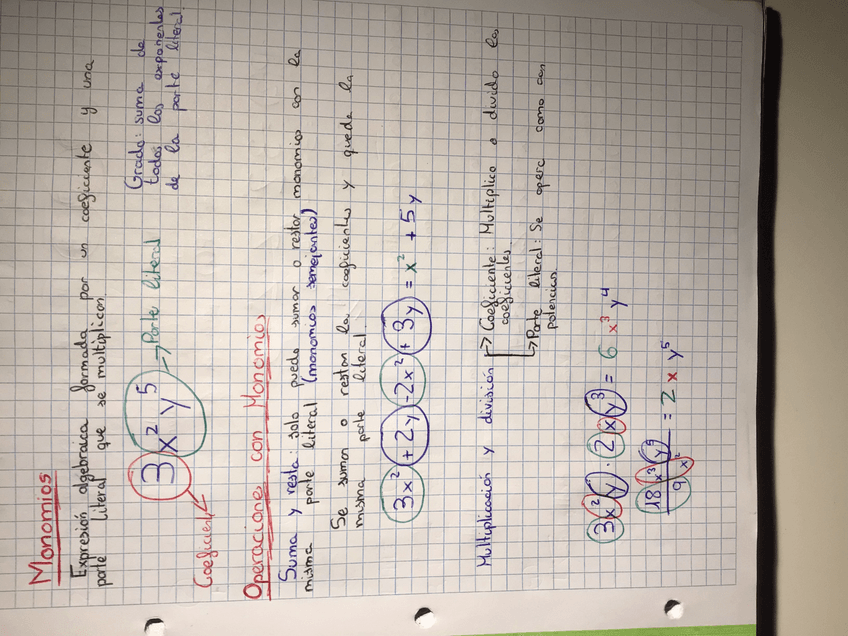 Monomios
Expresión algebraica formada por un coeficiente y una
parte literal que se multiplican
3x²y⁵
→Parte literal
Coeficiente
Grado: suma de
todos los exponentes
de la parte literal.
Operaciones con Monomios
Suma y resta: solo puedo sumar o restar monomios con la
misma parte literal (monomios semejantes)
Se suman o restan los coeficientes y queda la
misma parte literal.
3x² + 2y - 2x² + 3y = x² + 5y
Multiplicación y división
→Coeficiente: Multiplico o divido los
coeficientes.
↳Parte literal: Se opera como con
potencias.
3x²y · 2xy³ = 6x³y⁴
18x³y⁵ / 9x² = 2xy⁵